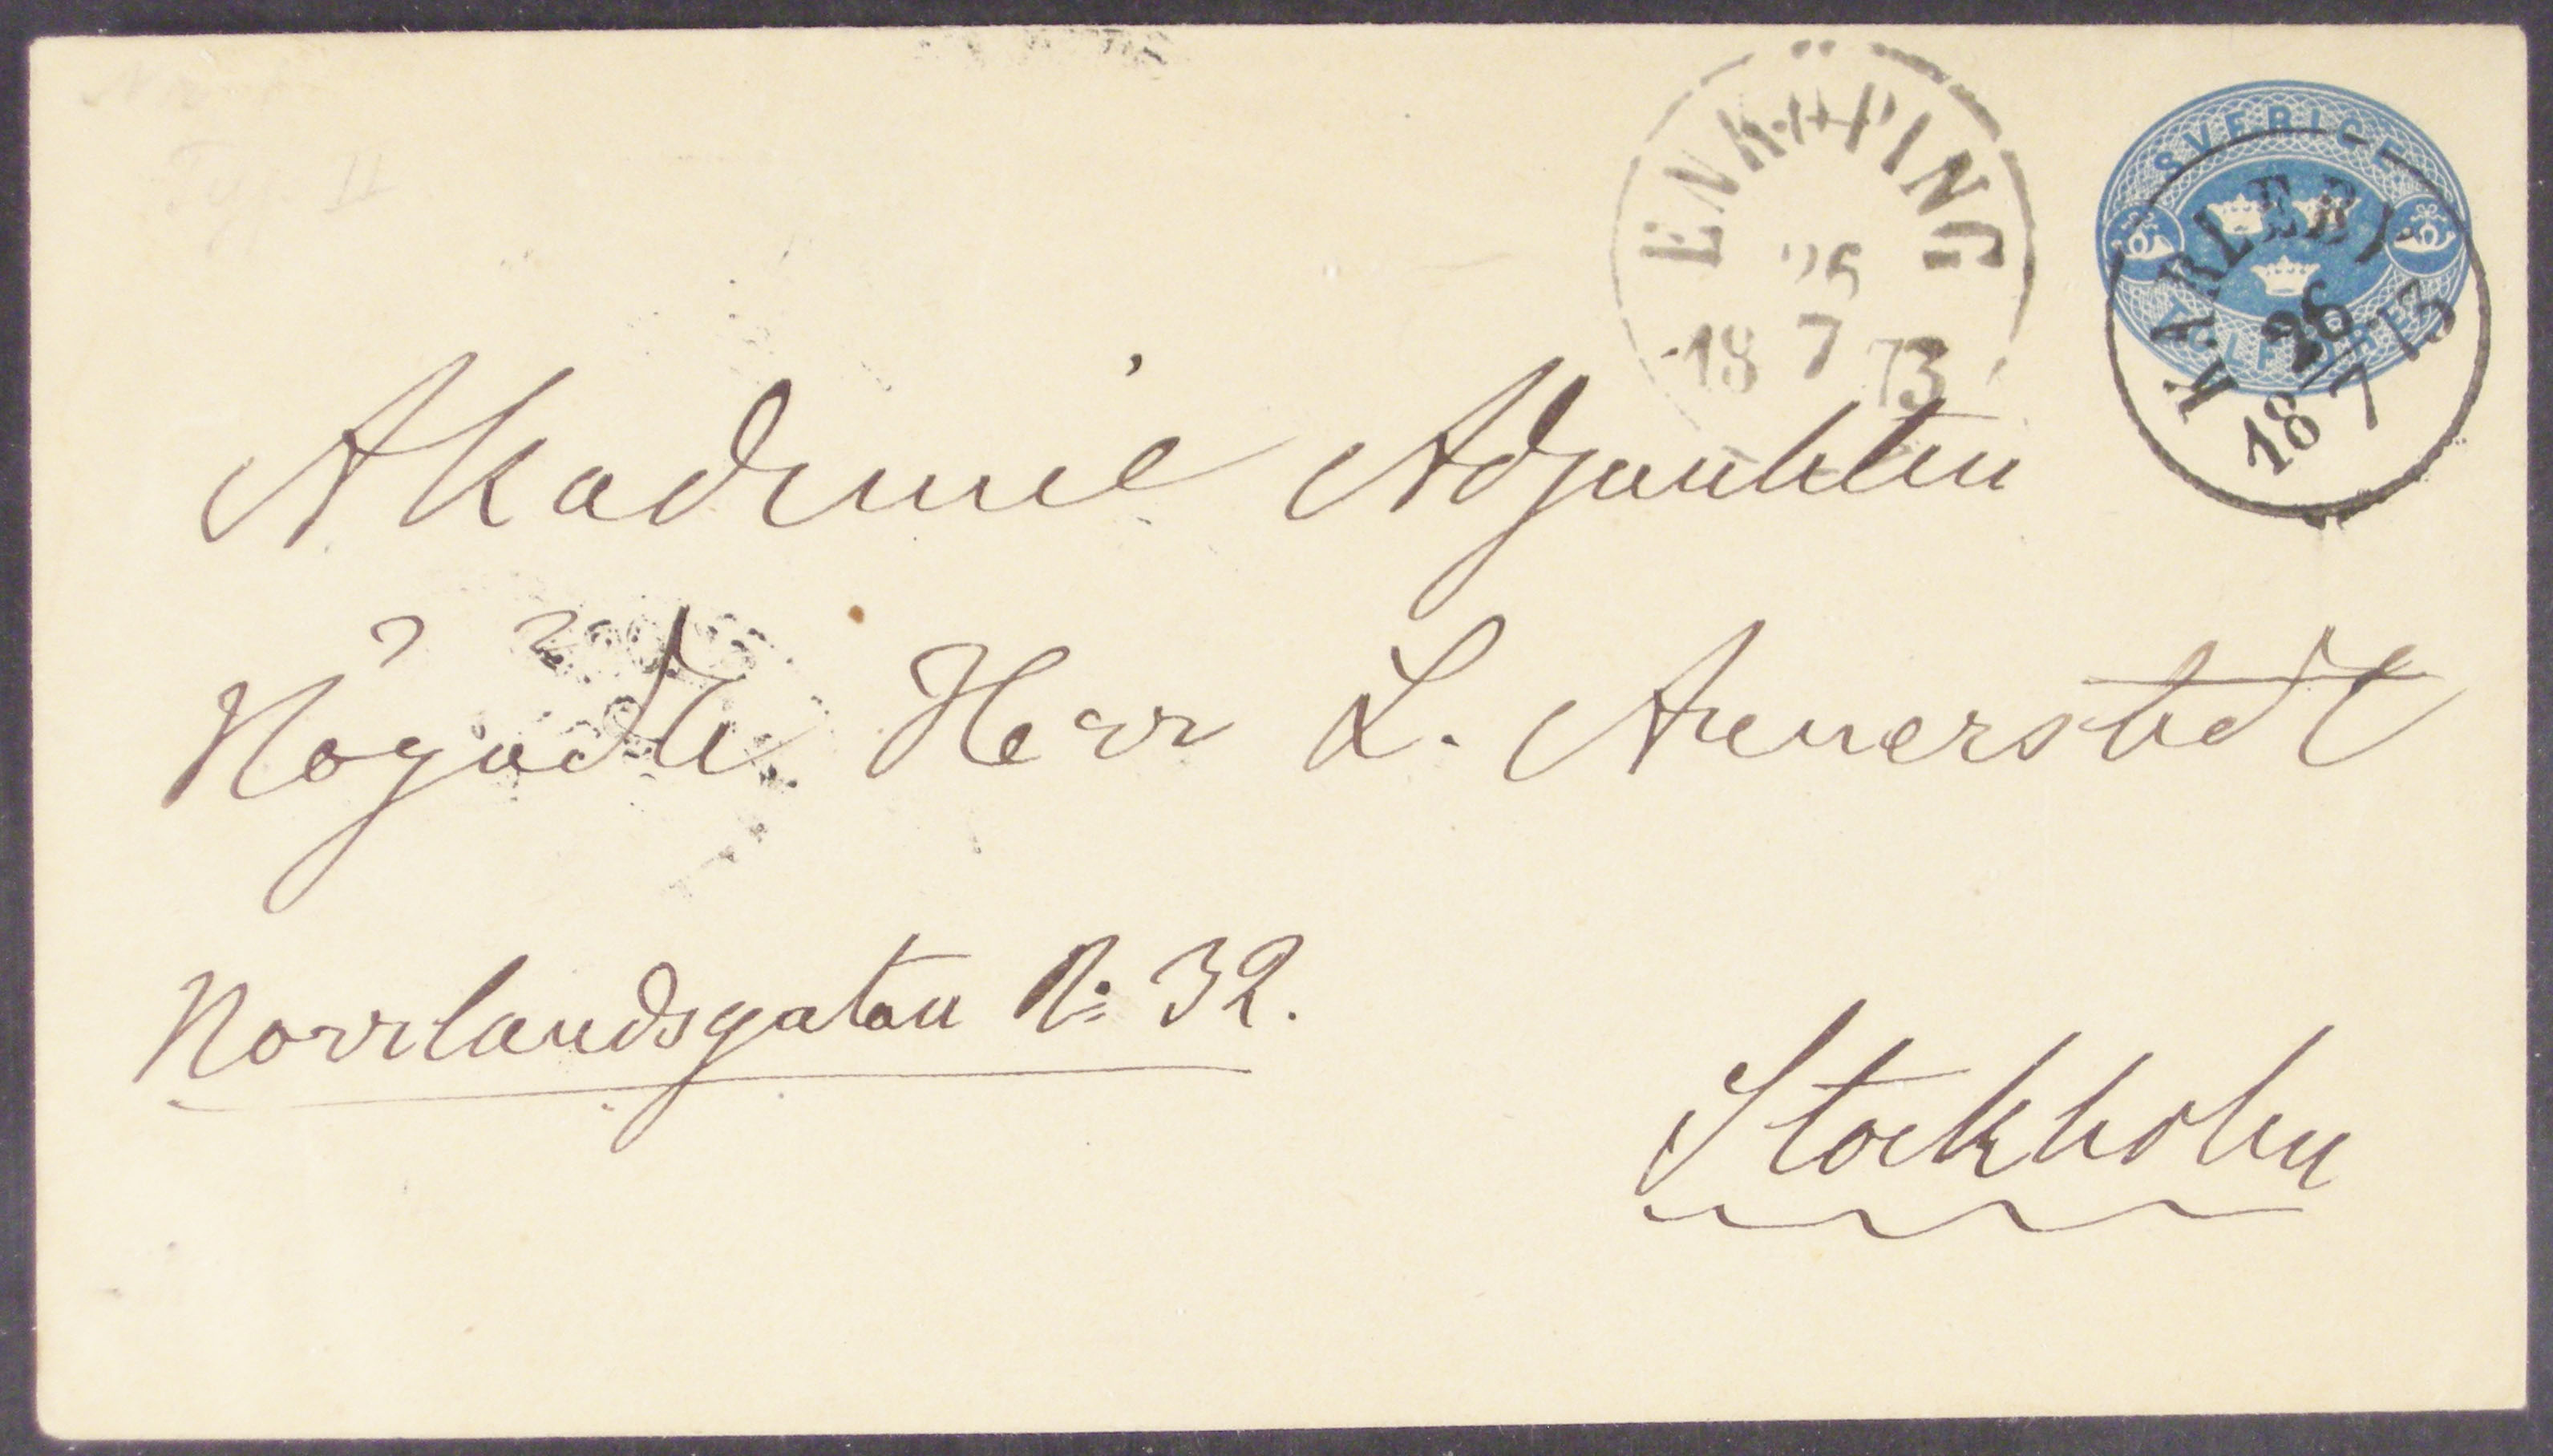 ENKÖPING
26
18 7 73
SVERIGE
TOLF ÖRE
KARLEBY
26
18 7 73
Typ II
Akademie Adjunkten
Högädle Herr L. Annerstedt
Norrlandsgatan No 32.
Stockholm